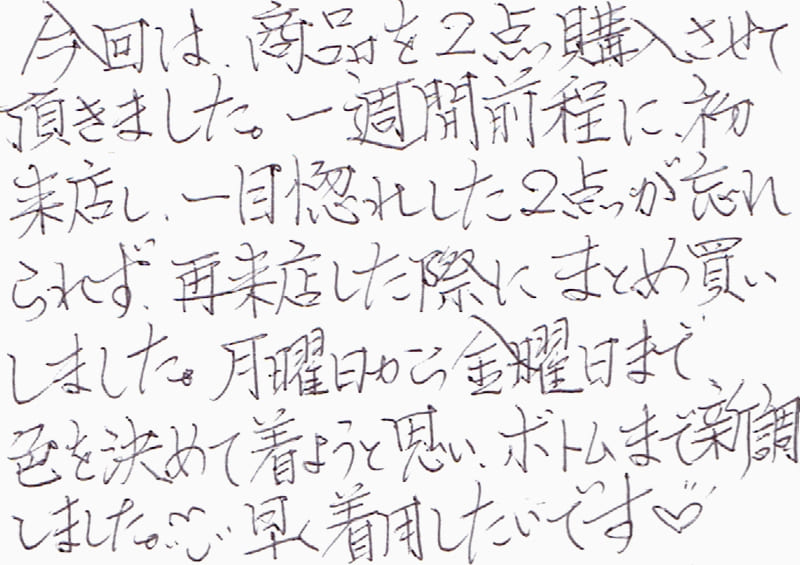 今回は、商品を2点購入させて
頂きました。一週間前程に、初
来店し、一目惚れした2点が忘れ
られず、再来店した際にまとめ買い
しました。月曜日から金曜日まで、
色を決めて着ようと思い、ボトムまで新調
しました。早く着用したいです♡